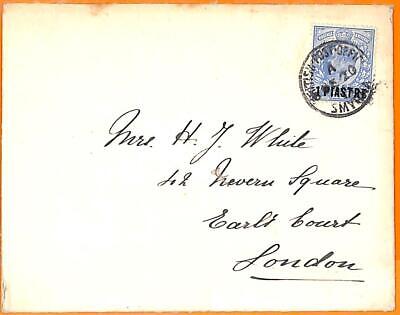 BRITISH POST OFFICE
A
SMYRNA
1 PIASTRE
Mrs. H. J. White
42 Nevern Square
Earl's Court
London